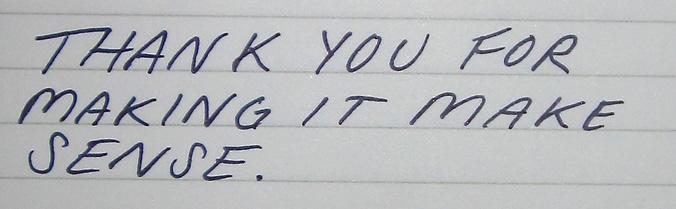 THANK YOU FOR
MAKING IT MAKE
SENSE.